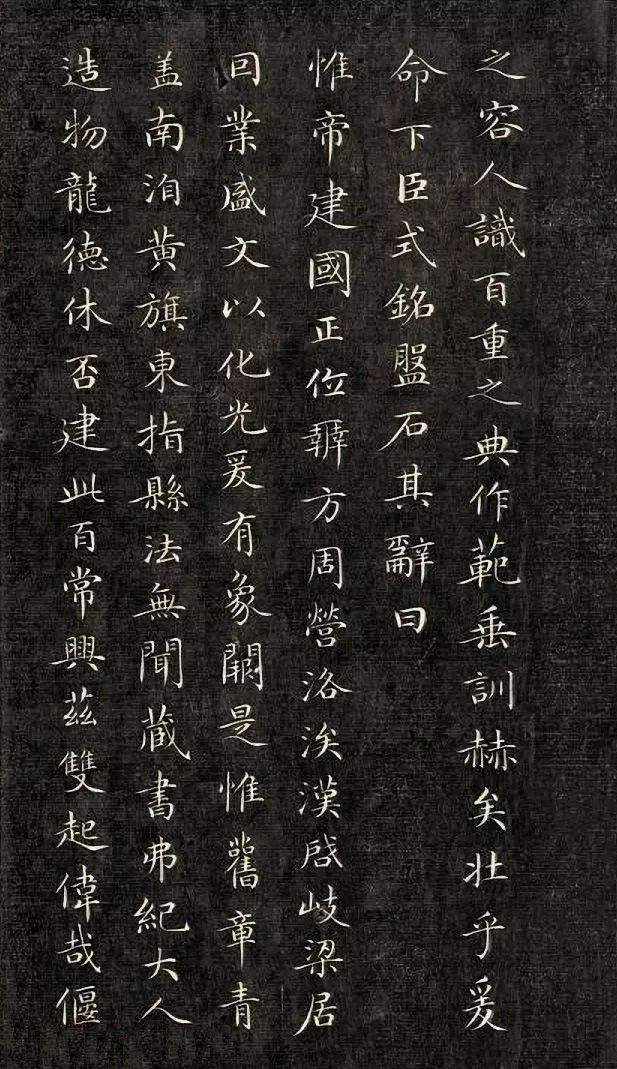 之容人識百重之典作範垂訓赫矣壯乎爰
命下臣式銘盤石其辭曰
惟帝建國正位辨方周營洛涘漢啓岐梁居
囙業盛文以化光爰有象闕是惟舊章青
盖南洎黄旗東指縣法無聞蔵書弗紀大人
造物龍德休否建此百常興茲雙起偉哉偃